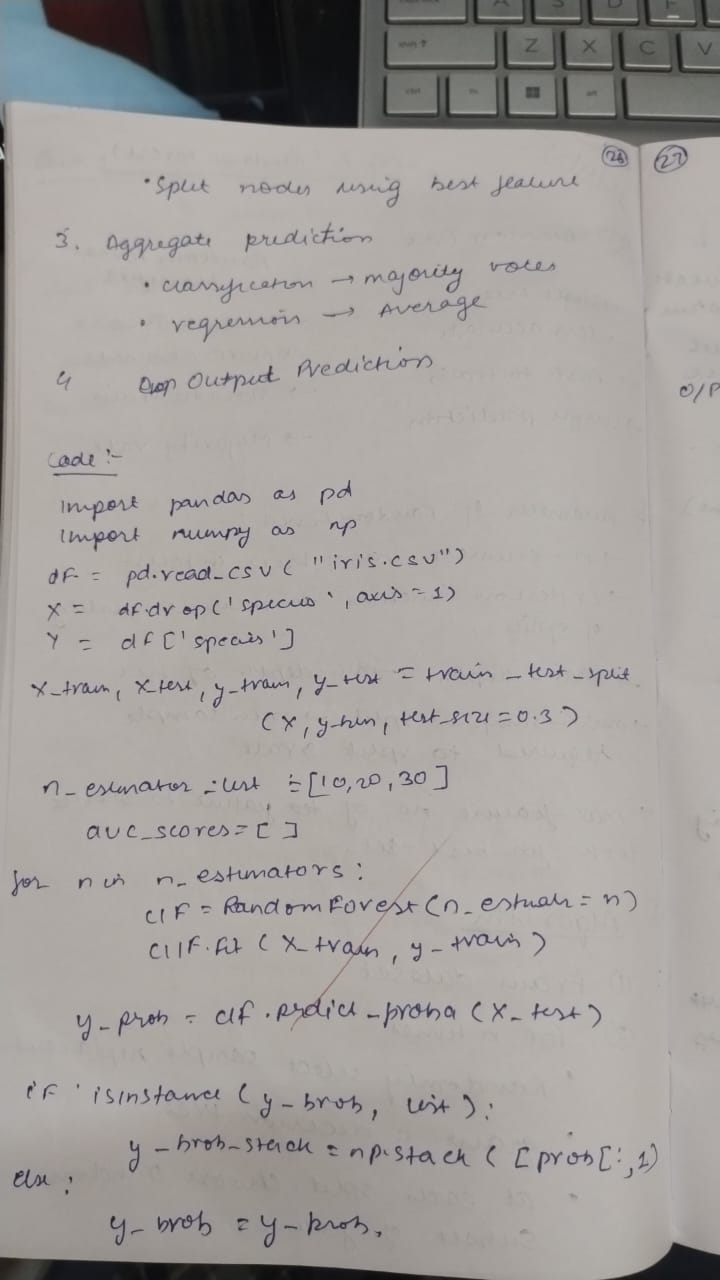 (26) (27)
• Split nodes using best feature
3. Aggregate prediction
• classification → majority votes
• regression → Average
4 Output Prediction
O/P
Code :-
Import pandas as pd
Import numpy as np
df = pd.read_csv ( "iris.csv")
X = df.drop ('species', axis = 1)
Y = df ['species']
X_train, X_test, y_train, y_test = train _ test _ split
(X, y_bin, test_size = 0.3)
n_estimator_list = [10, 20, 30]
auc_scores = [ ]
for n in n_estimators :
clf = Random Forest (n_ = n)
clf.fit (X_train, y_train)
y_prob = clf . predict _ proba (X_test)
if isinstance (y_prob, list) :
y_prob_stack = np.stack ( [prob[:,1)
else :
y_prob = y_prob.
A S D F
shift ↑ Z X C V
ctrl fn alt